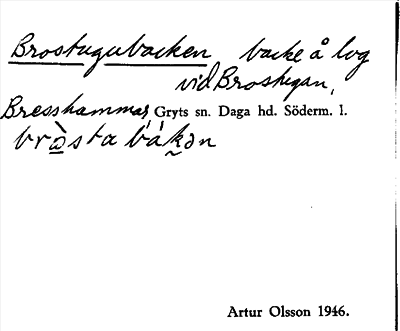 Brostugubacken backe å log
vid Brostugan,
Bresshammar, Gryts sn. Daga hd. Söderm. l.
bròsta bákən
Artur Olsson 1946.